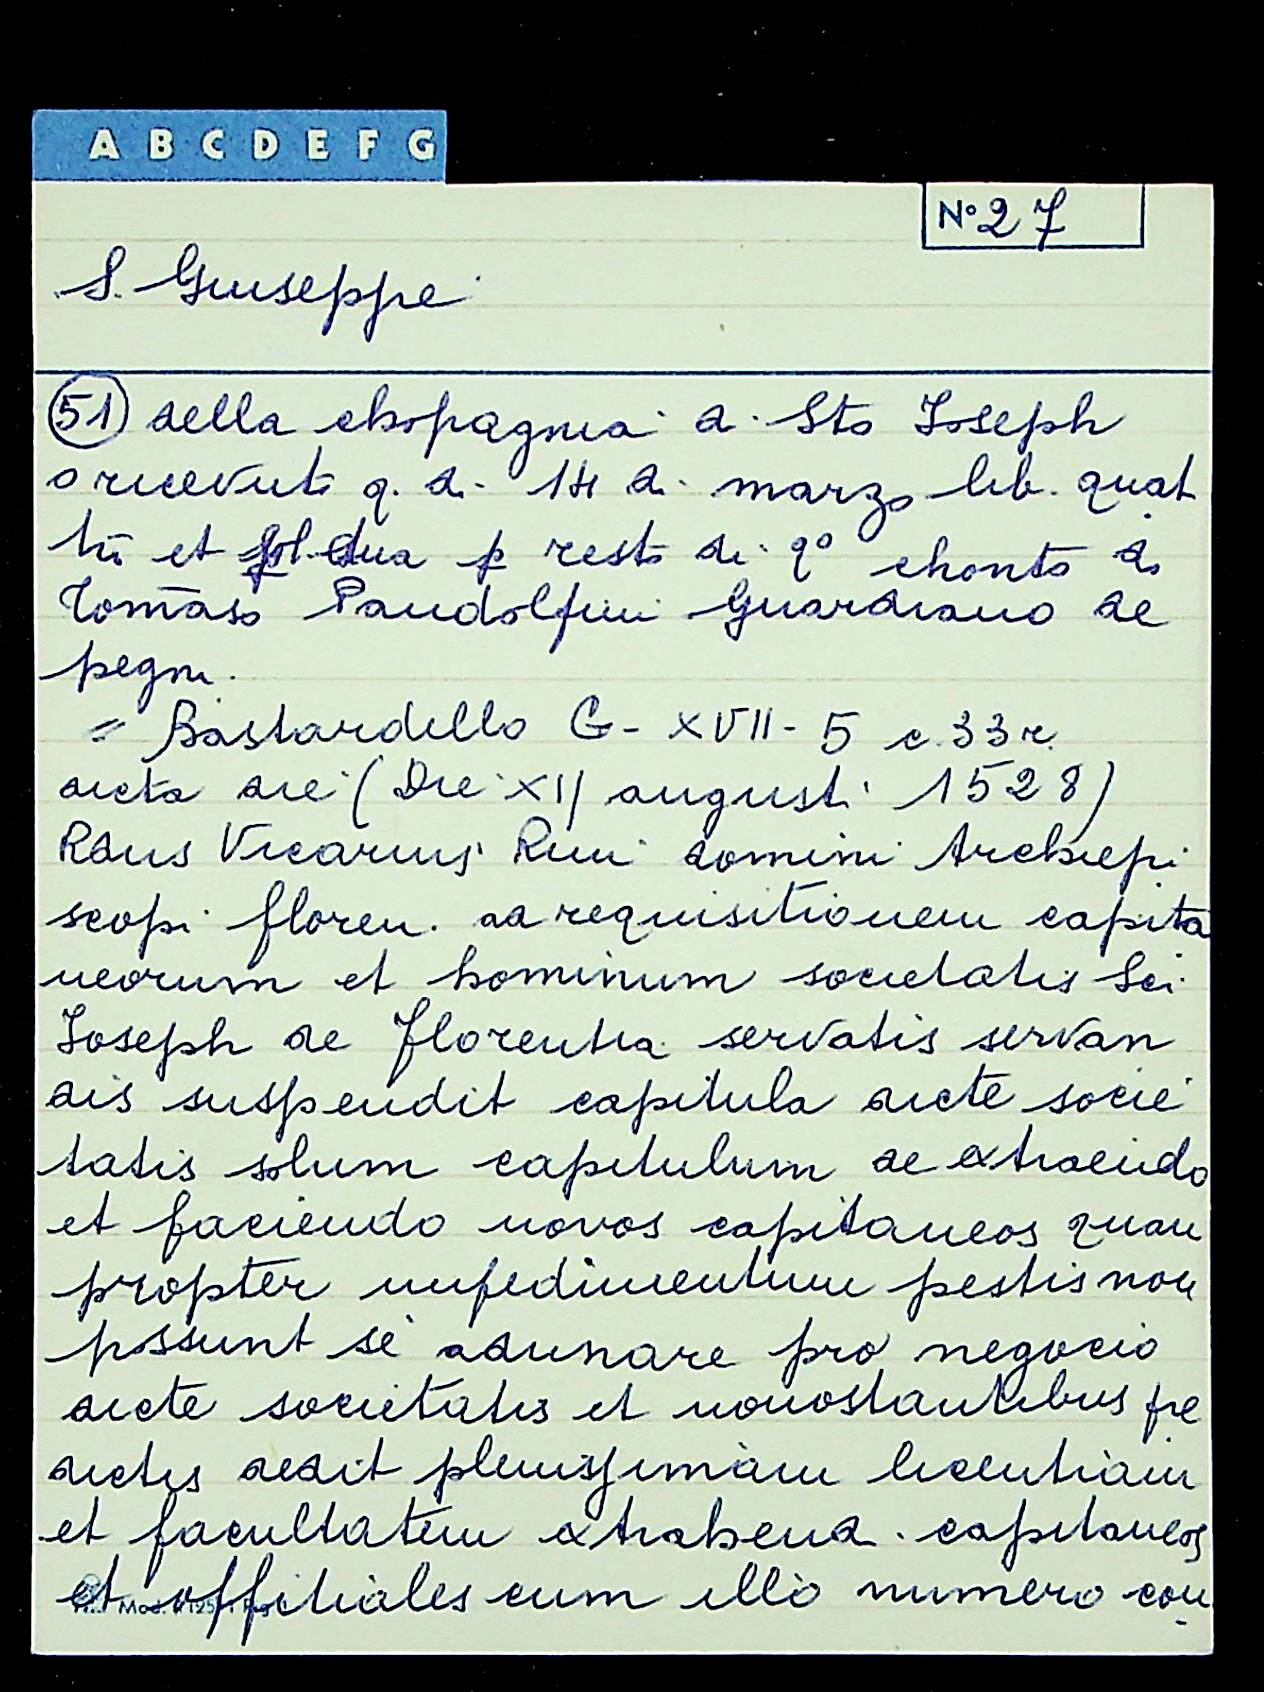 A B C D E F G
N° 27
S. Giuseppe
(51) della chopagnia di Sto Joseph
o ricevuto q. di 14 di marzo lib. quat
tro et sol. dua p resto di q° chonto do
Tomaso Pandolfini Guardiano de
pegni.
= Bastardello G - XVII - 5 c. 33 r.
dicta die (Die XII augusti 1528)
Rdus Vicarius Rmi domini Archiepi
scopi floren. ad requisitionem capita
neorum et hominum societatis Sci
Joseph de Florentia servatis servan
dis suspendit capitula dicte socie
tatis solum capitulum de extraendo
et faciendo novos capitaneos quan
propter impedimentum pestis non
possunt se adunare pro negocio
dicte societatis et nonostantibus pre
dictis dedit plenissimam licentiam
et facultatem extrahend. capitaneos
et offitiales cum illo numero con